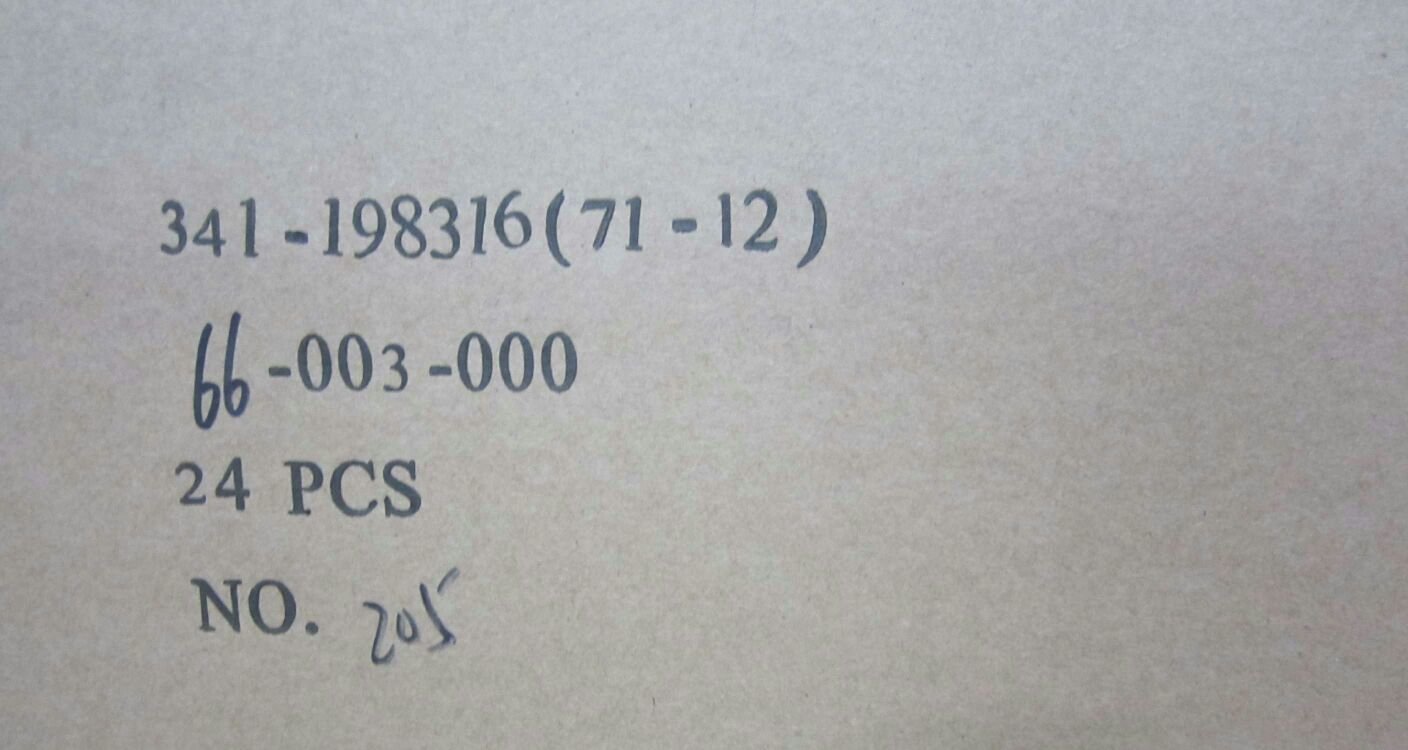 341-198316(71-12)
66-003-000
24 PCS
NO. 205